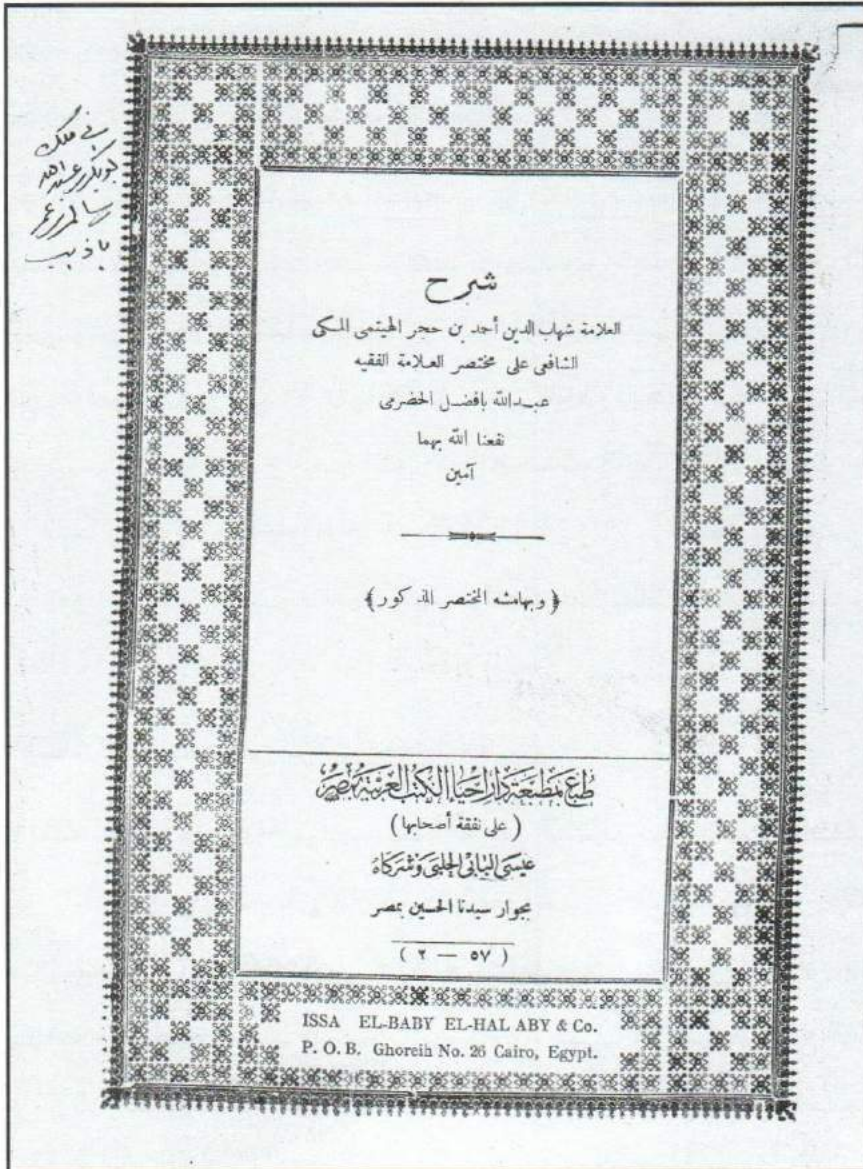 في ملك
أبو بكر بن عبد الله
سالم بن عمر
باذيب
شرح
العلامة شهاب الدين أحمد بن حجر الهيتمى المكى
الشافعى على مختصر العلامة الفقيه
عبد الله بافضل الحضرمى
نفعنا الله بهما
آمين
﴿ وبهامشه المختصر المذكور ﴾
طبع بمطبعة دار إحياء الكتب العربية بمصر
( على نفقة أصحابها )
عيسى البابى الحلبى وشركاه
بجوار سيدنا الحسين بمصر
( ٥٧ — ٢ )
ISSA EL-BABY EL-HAL ABY & Co.
P. O. B. Ghoreih No. 26 Cairo, Egypt.